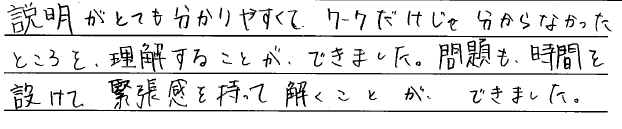 説明がとても分かりやすくて、ワークだけじゃ分からなかった
ところを、理解することが、できました。問題も、時間を
設けて、緊張感を持って解くことが、できました。